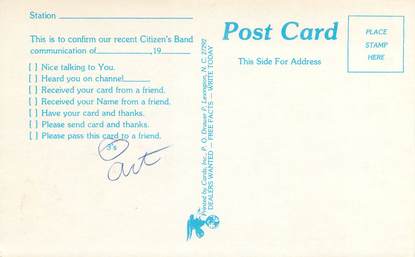 Station
This is to confirm our recent Citizen's Band
communication of , 19
[ ] Nice talking to You.
[ ] Heard you on channel
[ ] Received your card from a friend.
[ ] Received your Name from a friend.
[ ] Have your card and thanks.
[ ] Please send card and thanks.
[ ] Please pass this card to a friend.
3's
art
Printed by Cards, Inc., P. O. Drawer P, Lexington, N. C. 27292
DEALERS WANTED — FREE FACTS — WRITE TODAY
Post Card
This Side For Address
PLACE
STAMP
HERE